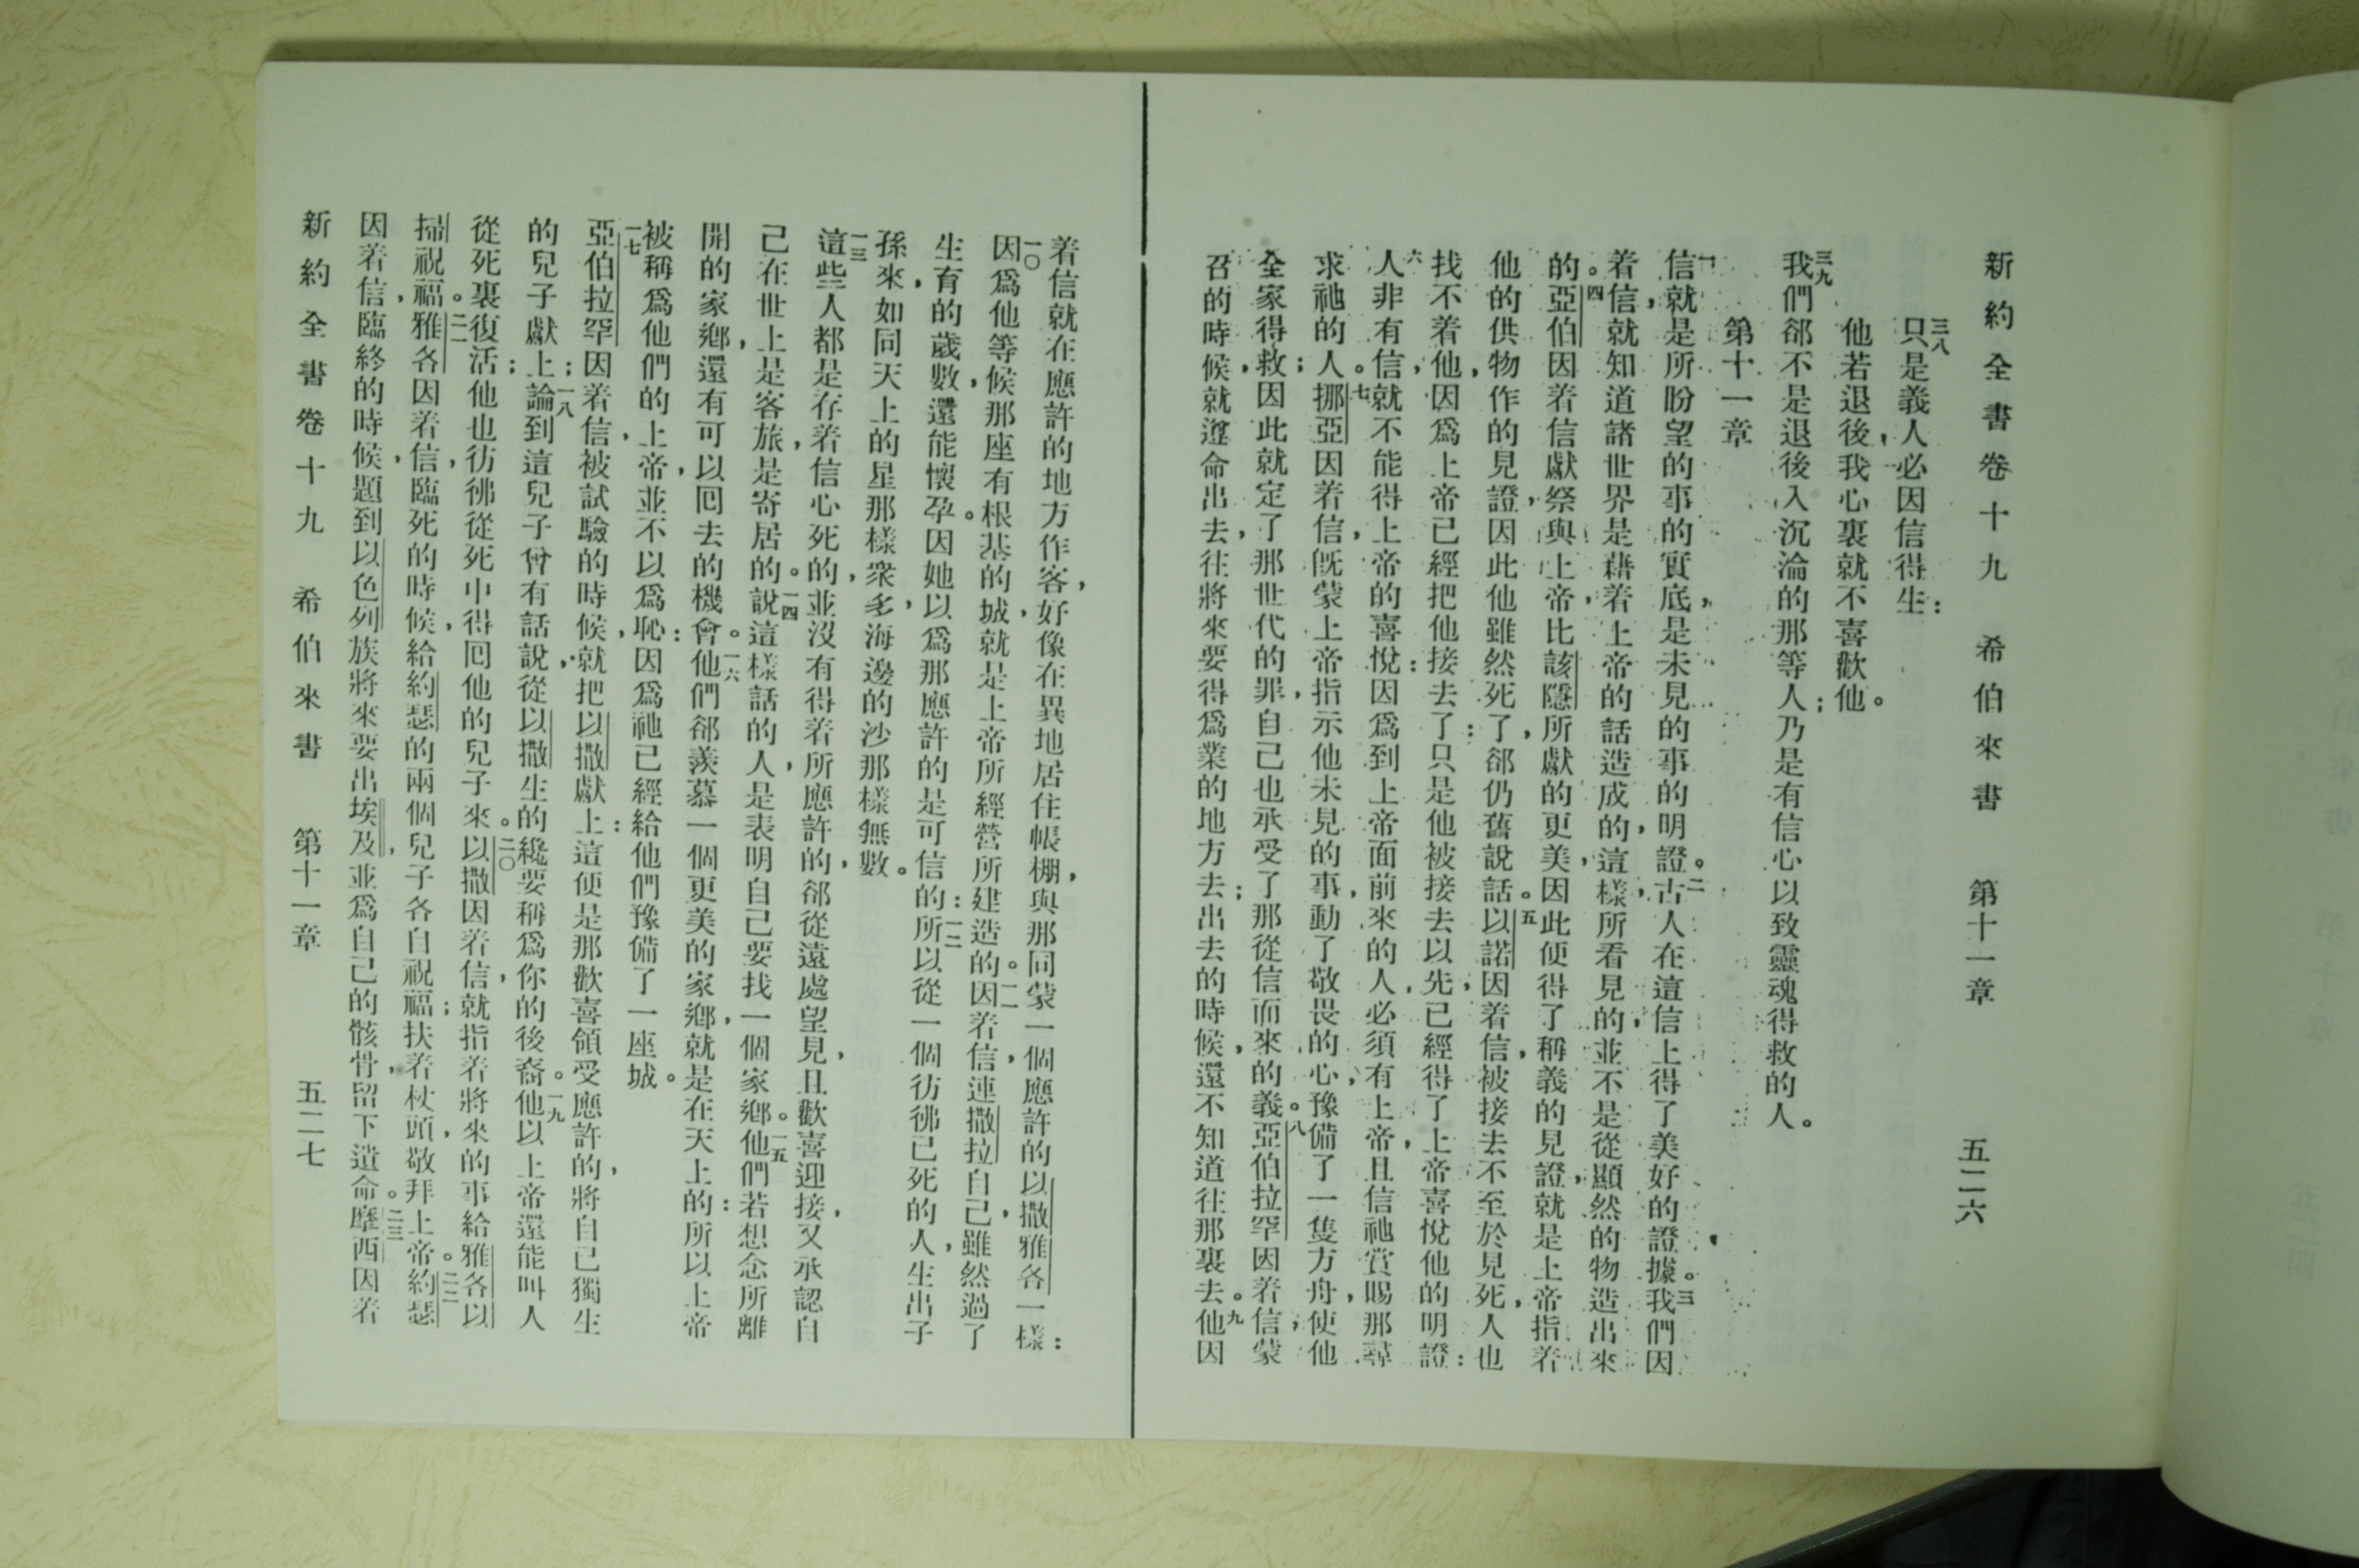 新約全書卷十九　希伯來書　第十一章　五二六
三八只是義人，必因信得生：
他若退後，我心裏就不喜歡他。
三九我們郤不是退後入沉淪的那等人；乃是有信心以致靈魂得救的人。
第十一章
一信，就是所盼望的事的實底，是未見的事的明證。二古人在這信上得了美好的證據。三我們因
着信，就知道諸世界是藉着上帝的話造成的，這樣，所看見的，並不是從顯然的物造出來
的。四亞伯因着信獻祭與上帝，比該隱所獻的更美，因此便得了稱義的見證，就是上帝指着
他的供物作的見證，因此他雖然死了，郤仍舊說話。五以諾因着信，被接去不至於見死，人也
找不着他，因爲上帝已經把他接去了：只是他被接去以先，已經得了上帝喜悅他的明證：
六人非有信，就不能得上帝的喜悅：因爲到上帝面前來的人，必須有上帝，且信祂賞賜那尋
求祂的人。七挪亞因着信，既蒙上帝指示他未見的事，動了敬畏的心，豫備了一隻方舟，使他
全家得救；因此就定了那世代的罪，自己也承受了那從信而來的義。八亞伯拉罕因着信，蒙
召的時候，就遵命出去，往將來要得爲業的地方去；出去的時候，還不知道往那裏去。九他因
着信就在應許的地方作客，好像在異地居住帳棚，與那同蒙一個應許的以撒雅各一樣：
一〇因爲他等候那座有根基的城，就是上帝所經營所建造的。一一因着信，連撒拉自己，雖然過了
生育的歲數，還能懷孕。因她以爲那應許的是可信的：一二所以從一個彷彿已死的人，生出子
孫來，如同天上的星那樣衆多，海邊的沙那樣無數。
一三這些人都是存着信心死的，並沒有得着所應許的，郤從遠處望見，且歡喜迎接，又承認自
己在世上是客旅，是寄居的。一四說這樣話的人，是表明自己要找一個家鄉。一五他們若想念所離
開的家鄉，還有可以回去的機會。一六他們郤羨慕一個更美的家鄉，就是在天上的：所以上帝
被稱爲他們的上帝，並不以爲恥：因爲祂已經給他們豫備了一座城。
一七亞伯拉罕因着信，被試驗的時候，就把以撒獻上：這便是那歡喜領受應許的，將自己獨生
的兒子獻上；一八論到這兒子曾有話說，從以撒生的纔要稱爲你的後裔。一九他以上帝還能叫人
從死裏復活；他也彷彿從死中得回他的兒子來。二〇以撒因着信，就指着將來的事給雅各以
掃祝福。二一雅各因着信，臨死的時候，給約瑟的兩個兒子各自祝福；扶着杖頭，敬拜上帝。二二約瑟
因着信，臨終的時候，題到以色列族將來要出埃及，並爲自己的骸骨，留下遺命。二三摩西因着
新約全書卷十九　希伯來書　第十一章　五二七